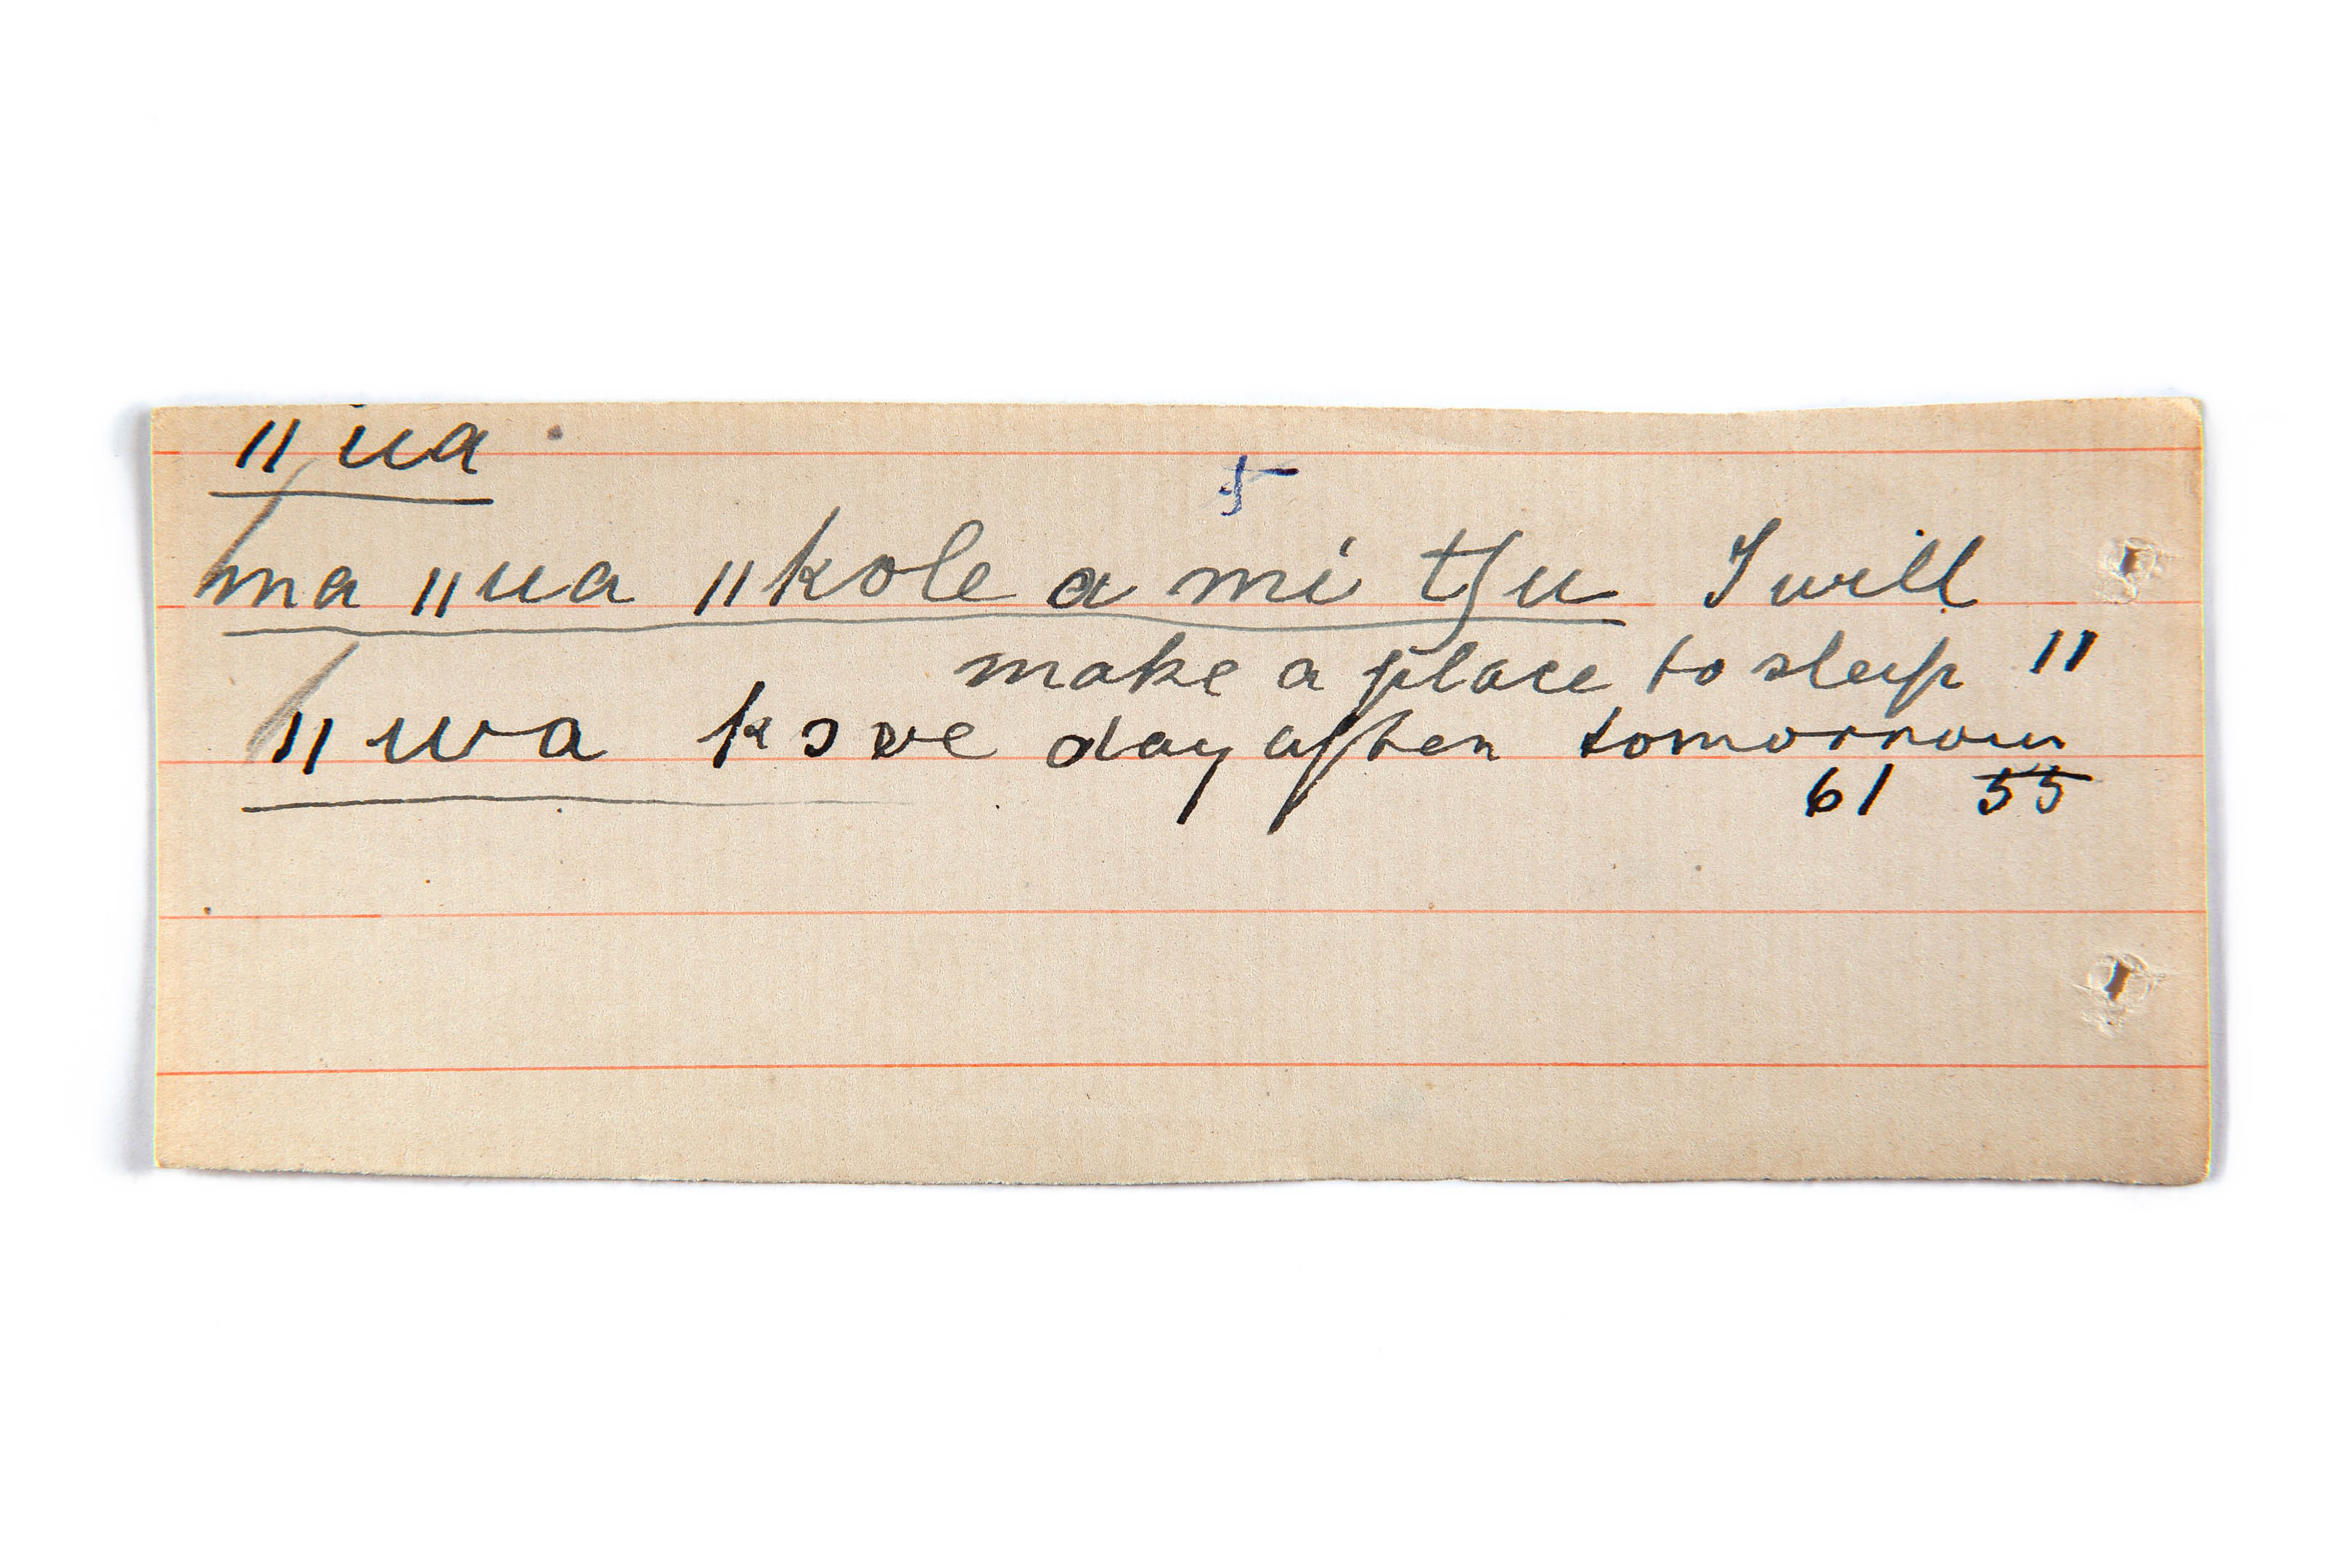 ǁua
5
ma ǁua ǁkole a mi tʃu I will
make a place to sleep 11
ǁwa kɔve day after tomorrow
61 55